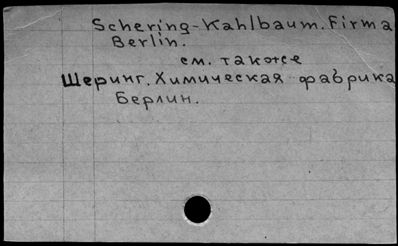 Schering-Kahlbaum. Firma
Berlin.
см. также
Шеринг. Химическая фабрика
Берлин.